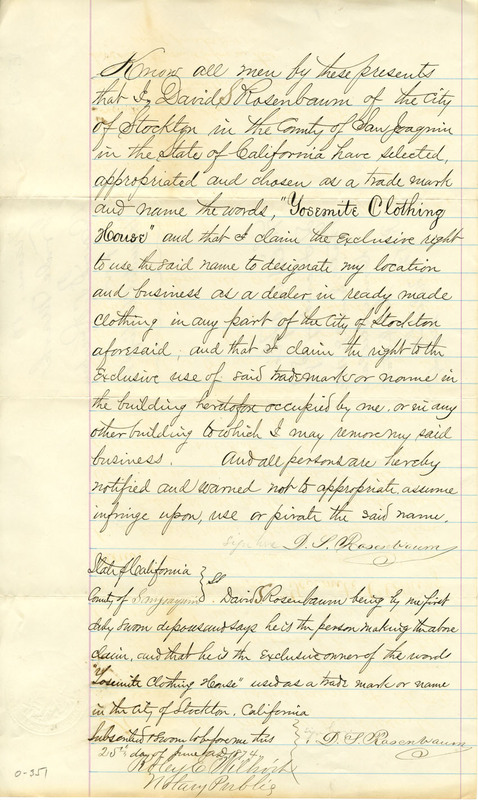 Know all men by these presents
that I, David S Rosenbaum of the City
of Stockton in the County of San Joaquin
in the State of California have selected,
appropriated and chosen as a trade mark
and name the words, "Yosemite Clothing
House" and that I claim the exclusive right
to use the said name to designate my location
and business as a dealer in ready made
clothing in any part of the City of Stockton
aforesaid, and that I claim the right to the
exclusive use of said trade mark or name in
the building heretofore occupied by me, or in any
other building to which I may remove my said
business. And all persons are hereby
notified and warned not to appropriate, assume
infringe upon, use or pirate the said name.
D. S. Rosenbaum
State of California
County of San Joaquin } SS. David S Rosenbaum being by me first
duly sworn deposes and says he is the person making the above
claim, and that he is the exclusive owner of the words
"Yosemite Clothing House" used as a trade mark or name
in the City of Stockton, California
Subscribed & Sworn to before me this } D. S. Rosenbaum
25th day of June AD, 1874,
Notary Public
0-351